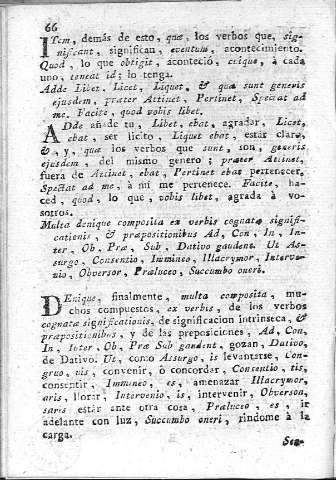 66
ITem, demás de esto, quæ, los verbos que, sig-
nificant, significan, eventum, acontecimiento.
Quod, lo que obtigit, aconteció, cuique, à cada
uno, teneat id; lo tenga.
Adde Libet. Licet, Liquet, & quæ sunt generis
ejusdem, præter Attinet, Pertinet, Spectat ad
me. Facite, quod vobis libet.
ADde añade tu, Libet, ebat, agradar, Licet,
ebat, ser licito, Liquet ebat, estár claro,
&, y, quæ los verbos que sunt, son, generis
ejusdem, del mismo genero; præter Attinet,
fuera de Attinet, ebat, Pertinet ebat pertenecer,
Spectat ad me, à mí me pertenece. Facite, ha-
ced, quod, lo que, vobis libet, agrada à vo-
sotros.
Multa denique composita ex verbis cognatæ signifi-
cationis, & præpositionibus Ad, Con, In, In-
ter, Ob, Præ, Sub, Dativo gaudent. Ut As-
surgo, Consentio, Immineo, Illacrymor, Interve-
nio, Obversor, Præluceo, Succumbo oneri.
DEnique, finalmente, multa composita, mu-
chos compuestos, ex verbis, de los verbos
cognatæ significationis, de significacion intrinseca, &
præpositionibus, y de las preposiciones, Ad, Con,
In, Inter, Ob, Præ Sub gaudent, gozan, Dativo,
de Dativo. Ut, como Assurgo, is levantarse, Con-
gruo, uis, convenir, ò concordar, Consentio, tis,
consentir, Immineo, es, amenazar Illacrymor,
aris, llorar, Intervenio, is, intervenir, Obversor,
saris estár ante otra cosa, Præluceo, es, ir
adelante con luz, Succumbo oneri, rindome à la
carga.